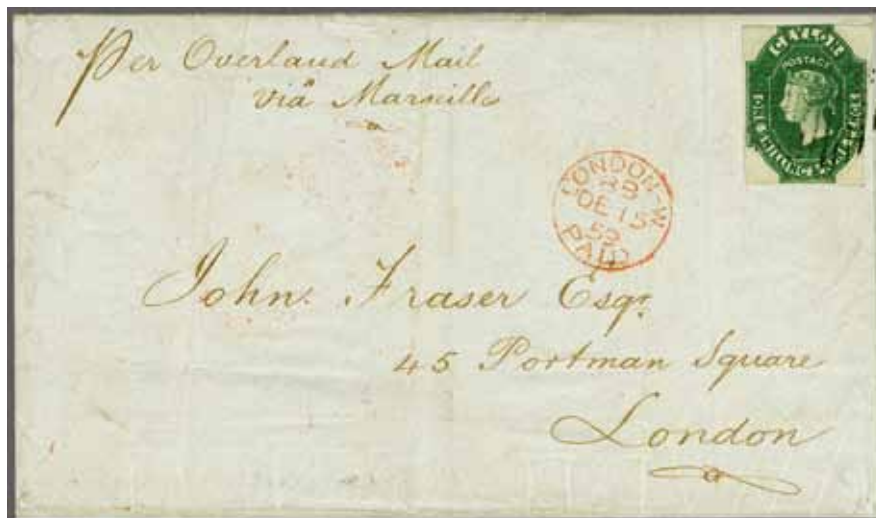 Per Overland Mail
via Marseille
CEYLON
POSTAGE
ONE SHILLING &
LONDON-W
DE 15
PAID
John. Fraser Esqr.
45 Portman Square
London